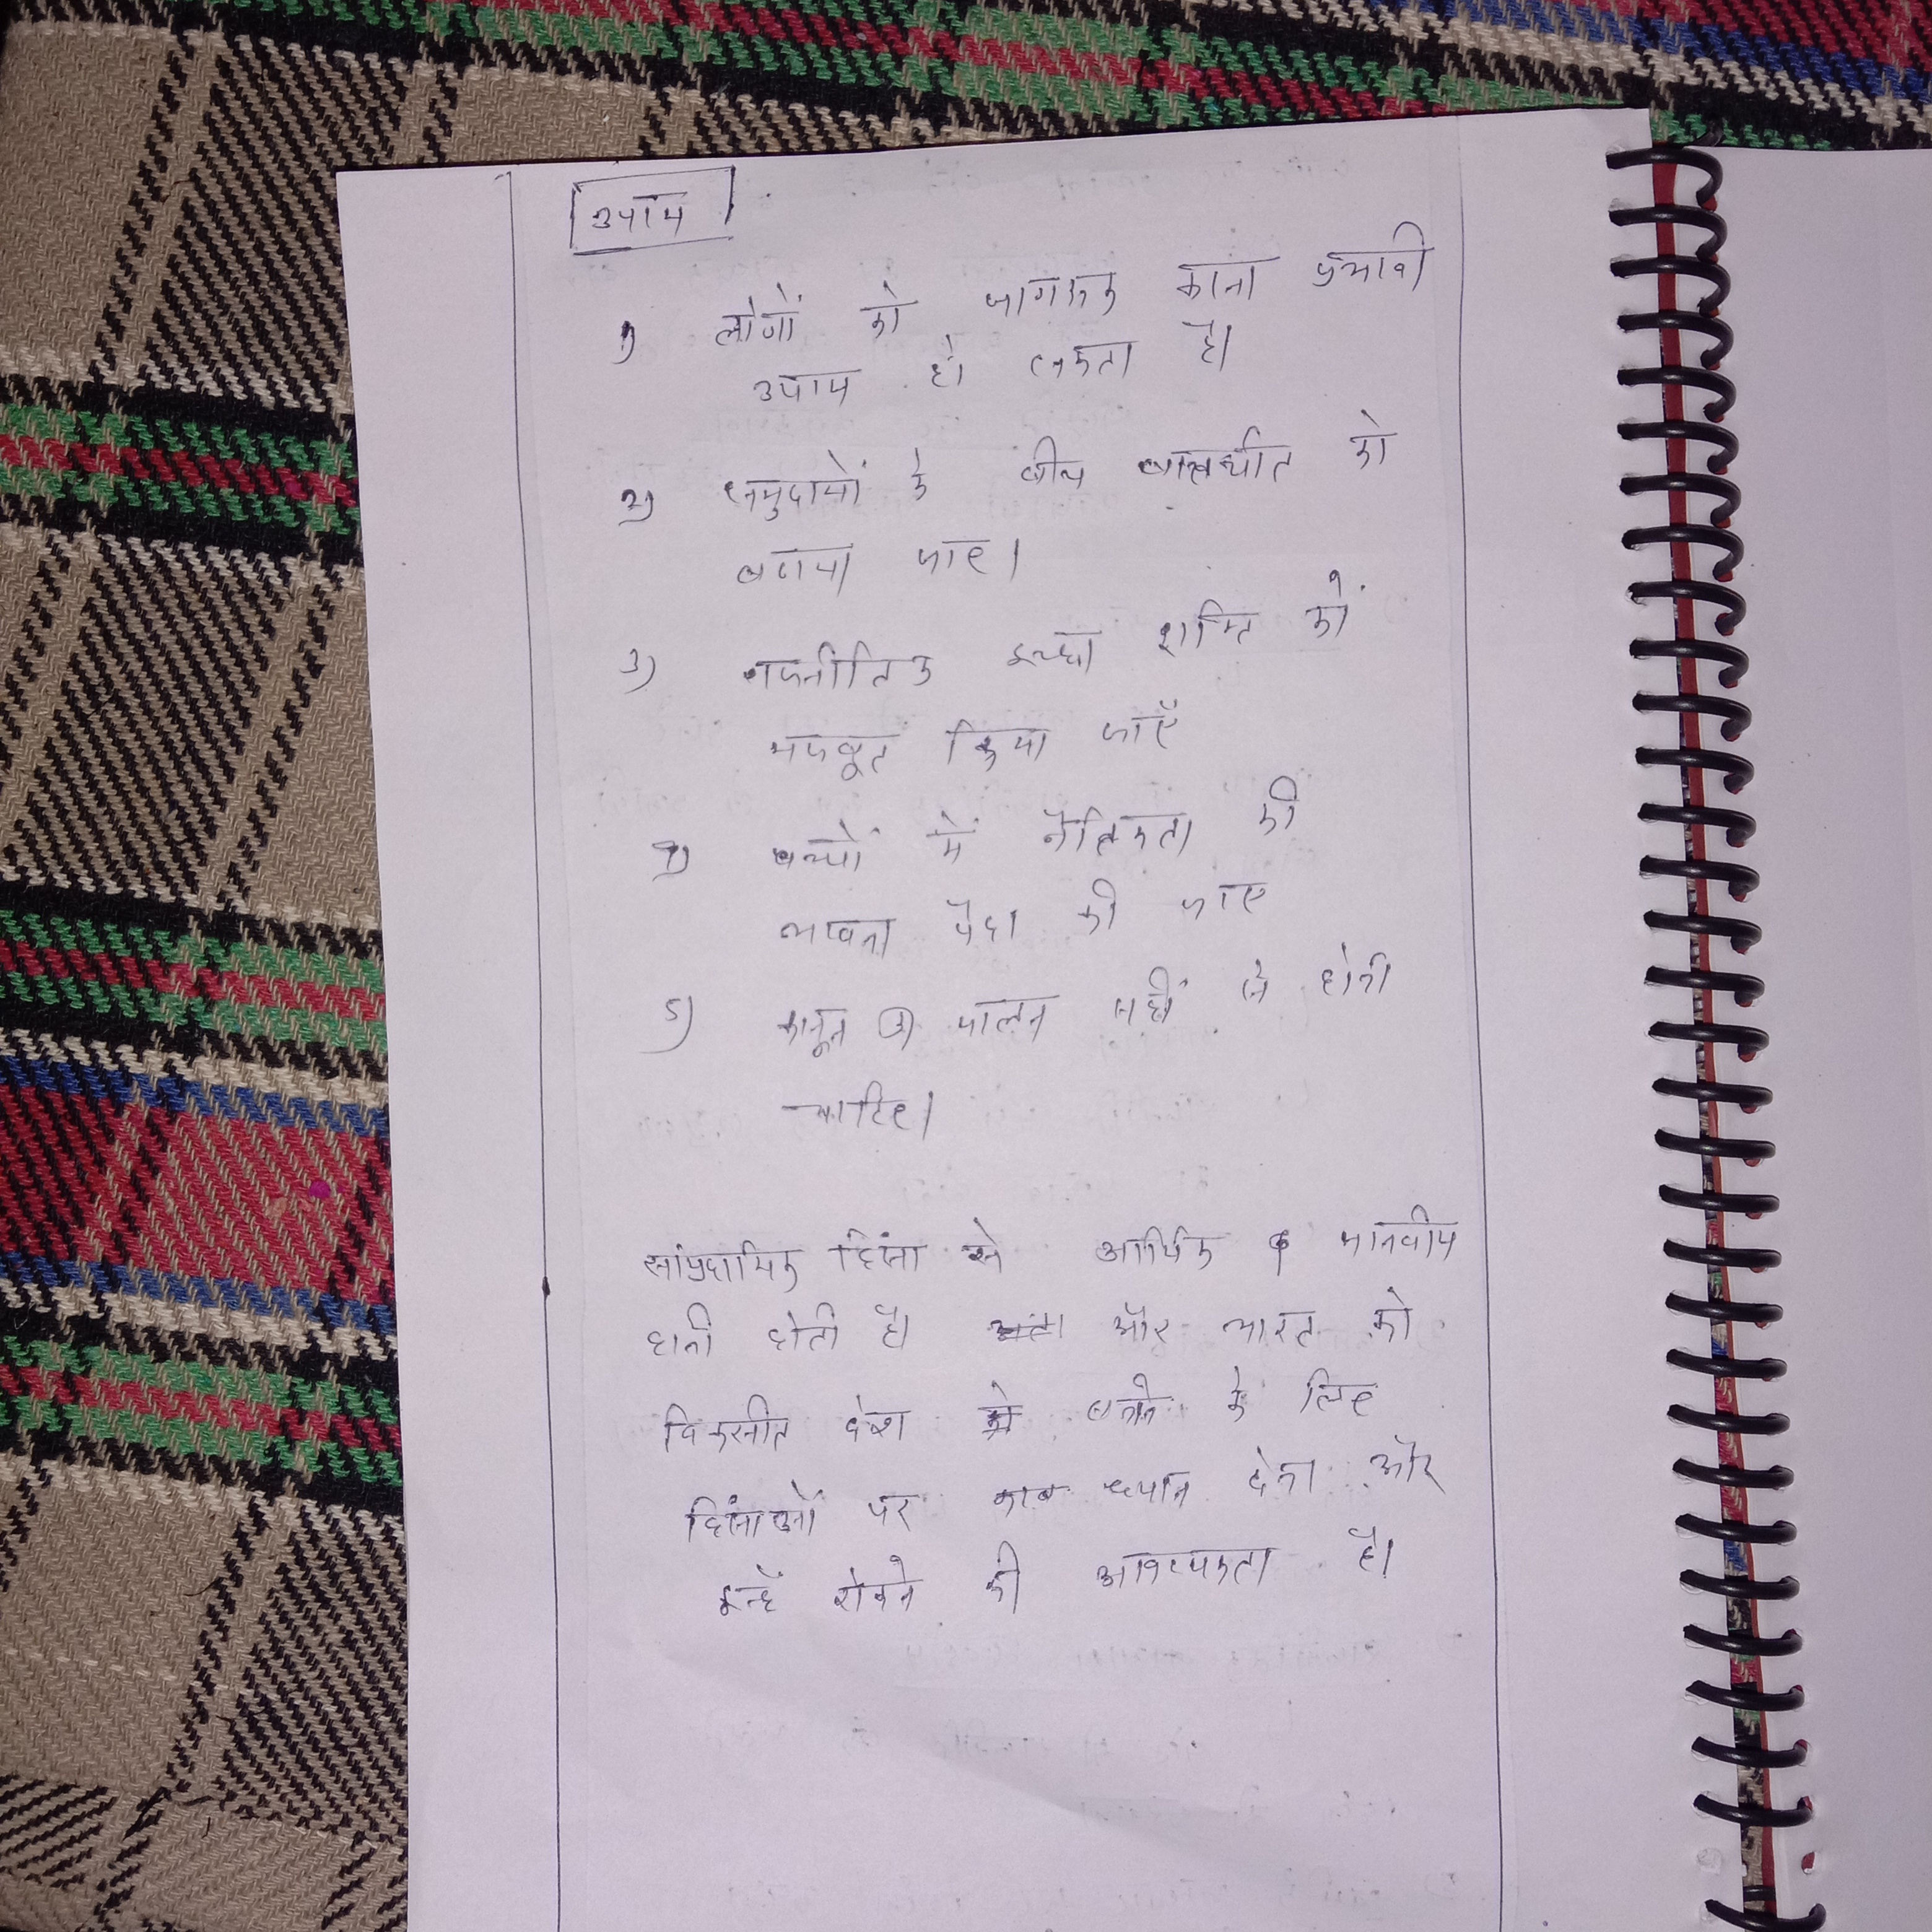 उपाय
1) लोगों को जागरूक करना प्रभावी
उपाय हो सकता है।
2) समुदायों के बीच बातचीत को
बढाया जाए।
3) राजनीतिक इच्छा शक्ति को
मजबूत किया जाएँ
4) बच्चों में नैतिकता की
भावना पैदा की जाए
5) कानून का पालन सही से होनी
चाहिए।
सांप्रदायिक हिंसा से आर्थिक व मानवीय
हानी होती है। और भारत को
विकसीत देश बनने के लिए
हिंसाओं पर ध्यान देना और
इन्हें रोकने की आवश्यकता है।